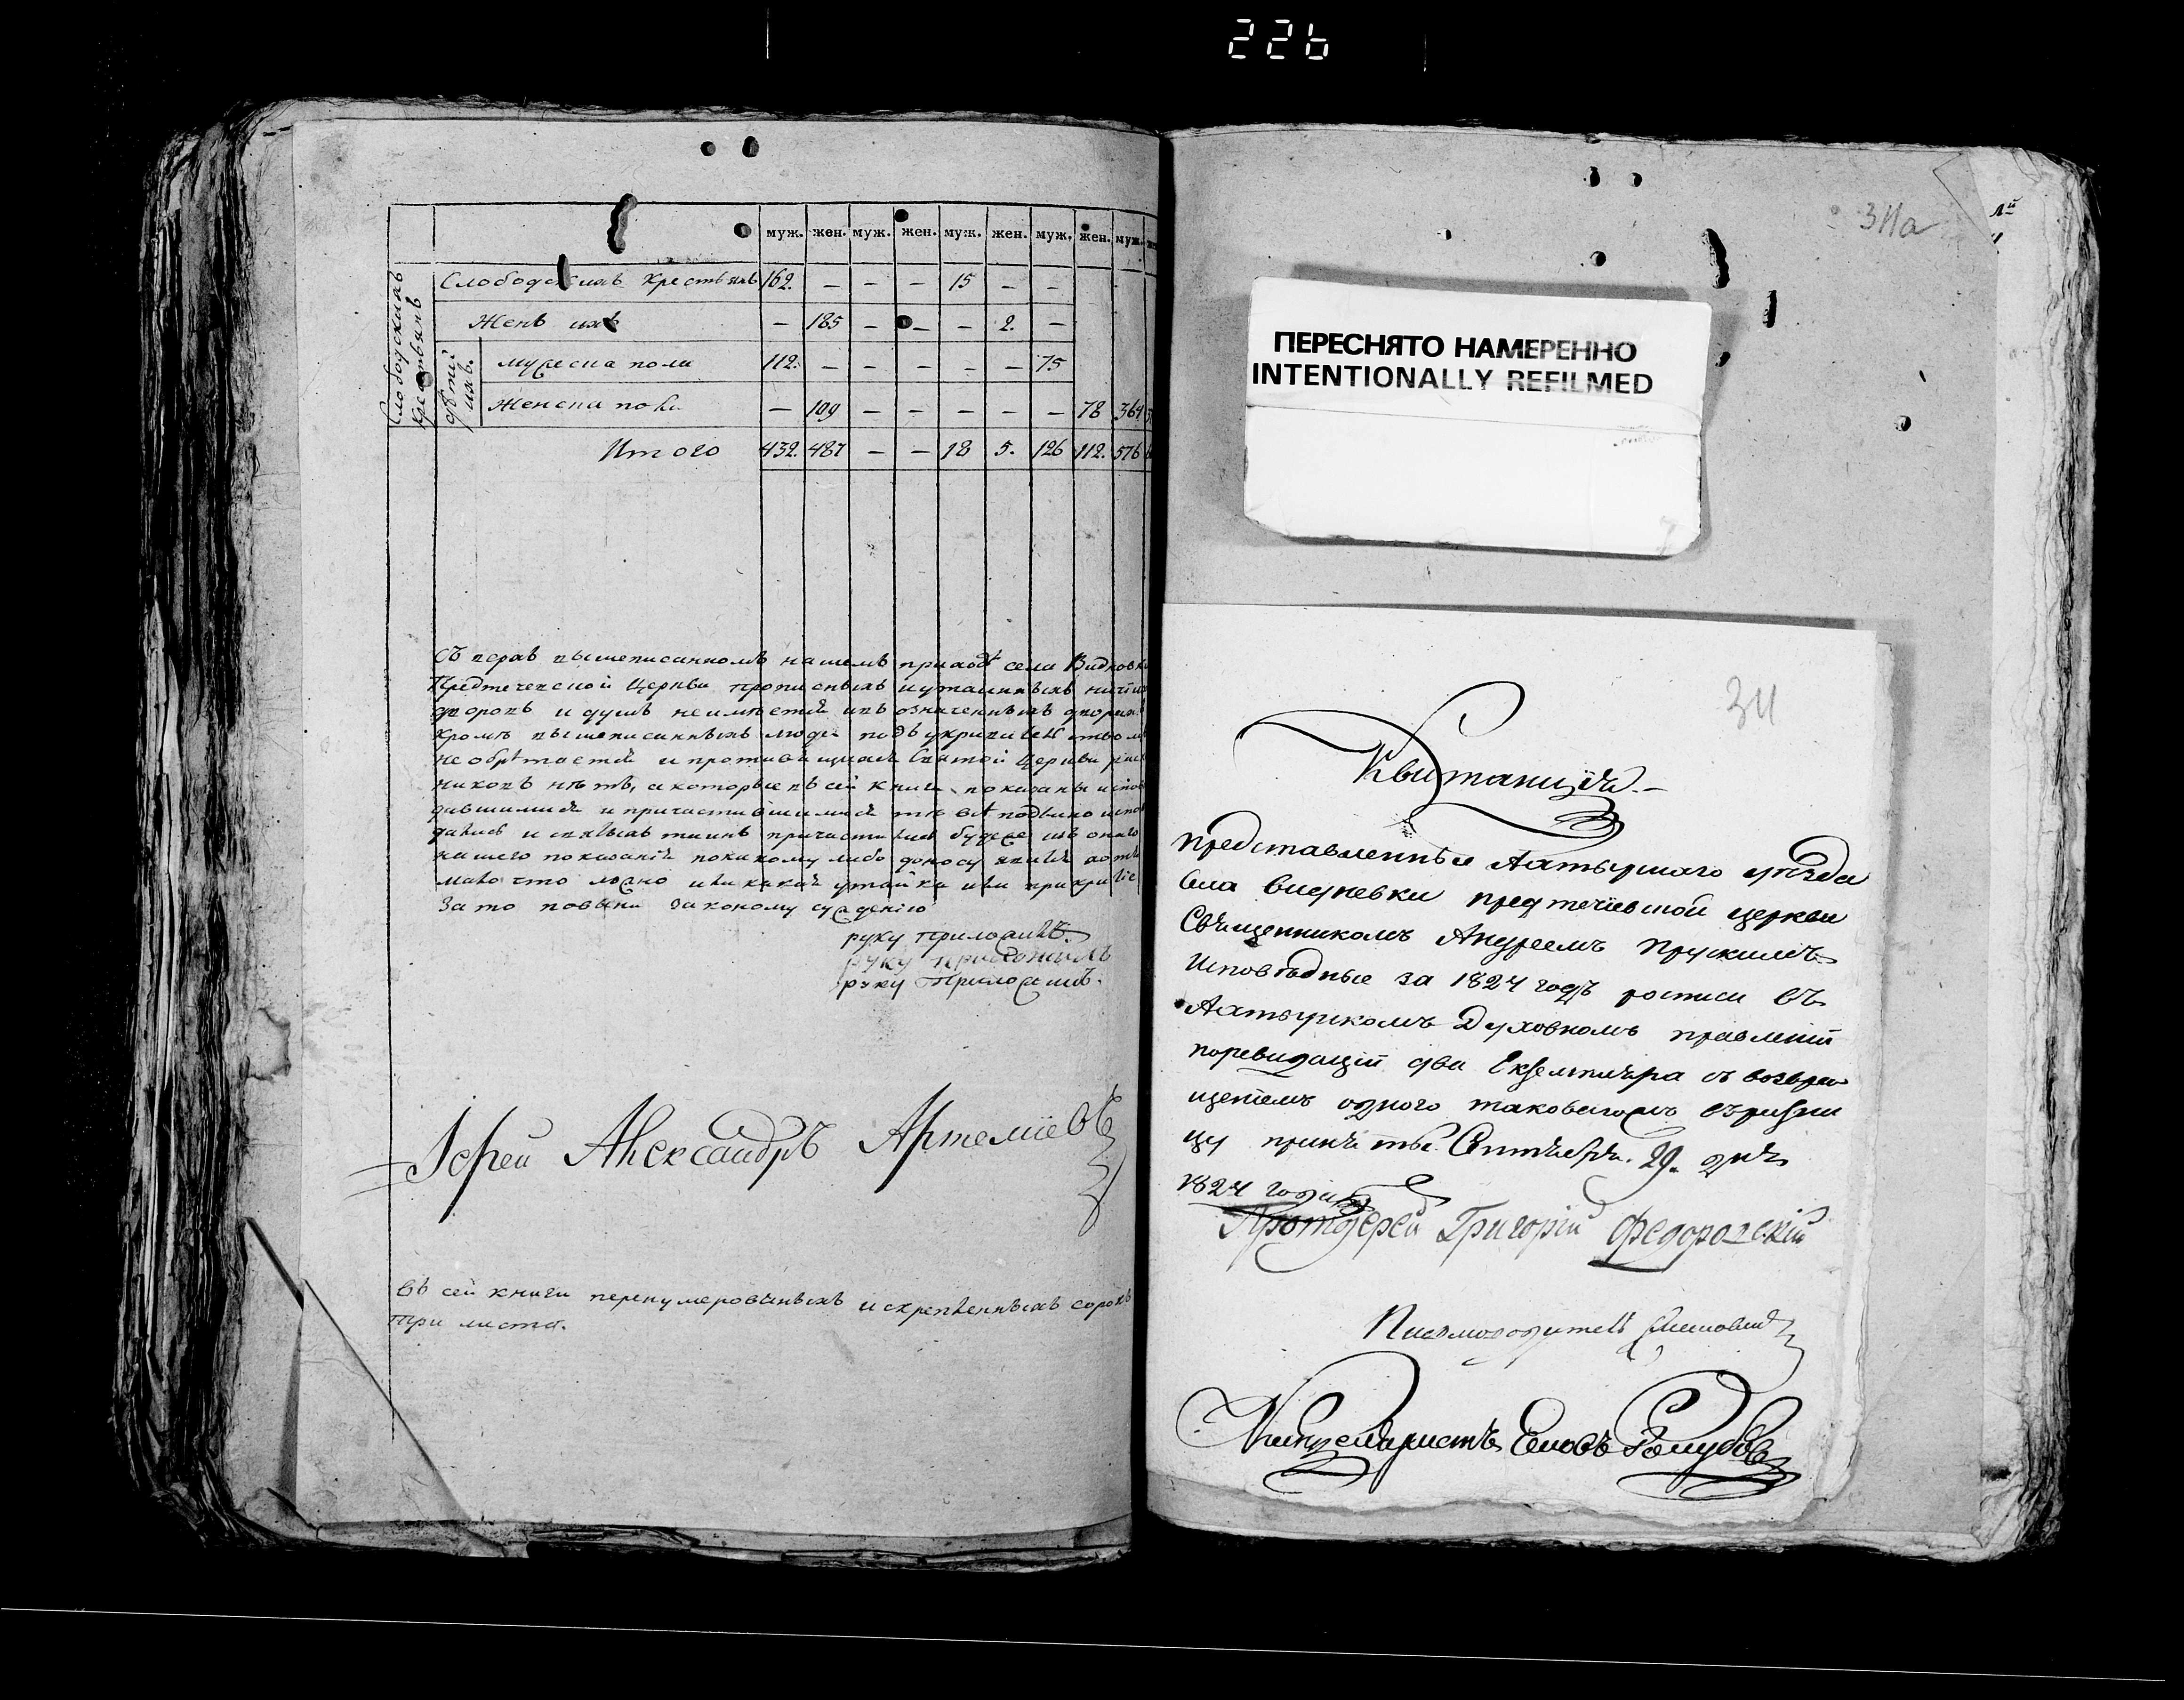 226
муж. жен. муж. жен. муж. жен. муж. жен. муж.
Слободскихъ крестьянъ
Слободскихъ крестьянъ 162. — — — 15 — —
Женъ ихъ — 185 — — — 2. —
дѣтей ихъ.
мужеска пола 112. — — — — — 75
Женска пола — 109 — — — — — 78 364
Итого 432. 487 — — 18 5. 126 112. 576
вышеписанномъ нашемъ приходѣ села
Предтеченской Церкви прописныхъ и утаенныхъ
дворовъ и душъ неимѣется и въ означенныхъ
кромѣ вышеписанныхъ людей подъ
необрѣтается и противящихся Святой Церкви
никовъ нѣтъ, а которые въ сей книги показаны
давшимися и причастившимися тѣ всѣ подлинно
дались и святыхъ таинъ причастились будеже изъ онаго
нашего показанія покакому либо доносу явится
мало что ложно или какая утайка или
за то повинни законному суждению
руку приложилъ.
руку приложилъ
руку Приложилъ.
Іерей Александръ Артеміевъ
Въ сей книги перенумерованныхъ и скрепленныхъ сорокъ
три листа.
311а
ПЕРЕСНЯТО НАМЕРЕННО
INTENTIONALLY REFILMED
311
Квитанція.—
Представленные Ахтырскаго уѣзда
села Видневки предтечіевской церкви
Священникомъ Андреемъ
Исповѣдные за 1824 годъ росписи въ
Ахтырскомъ Духовномъ правленіи
два Екземпляра съ возвра
щеніемъ одного
приняты. Сентября. 29. дня
1824 года
Протоіерей Григорій Федоровскій
Письмоводитель
Канцеляристъ